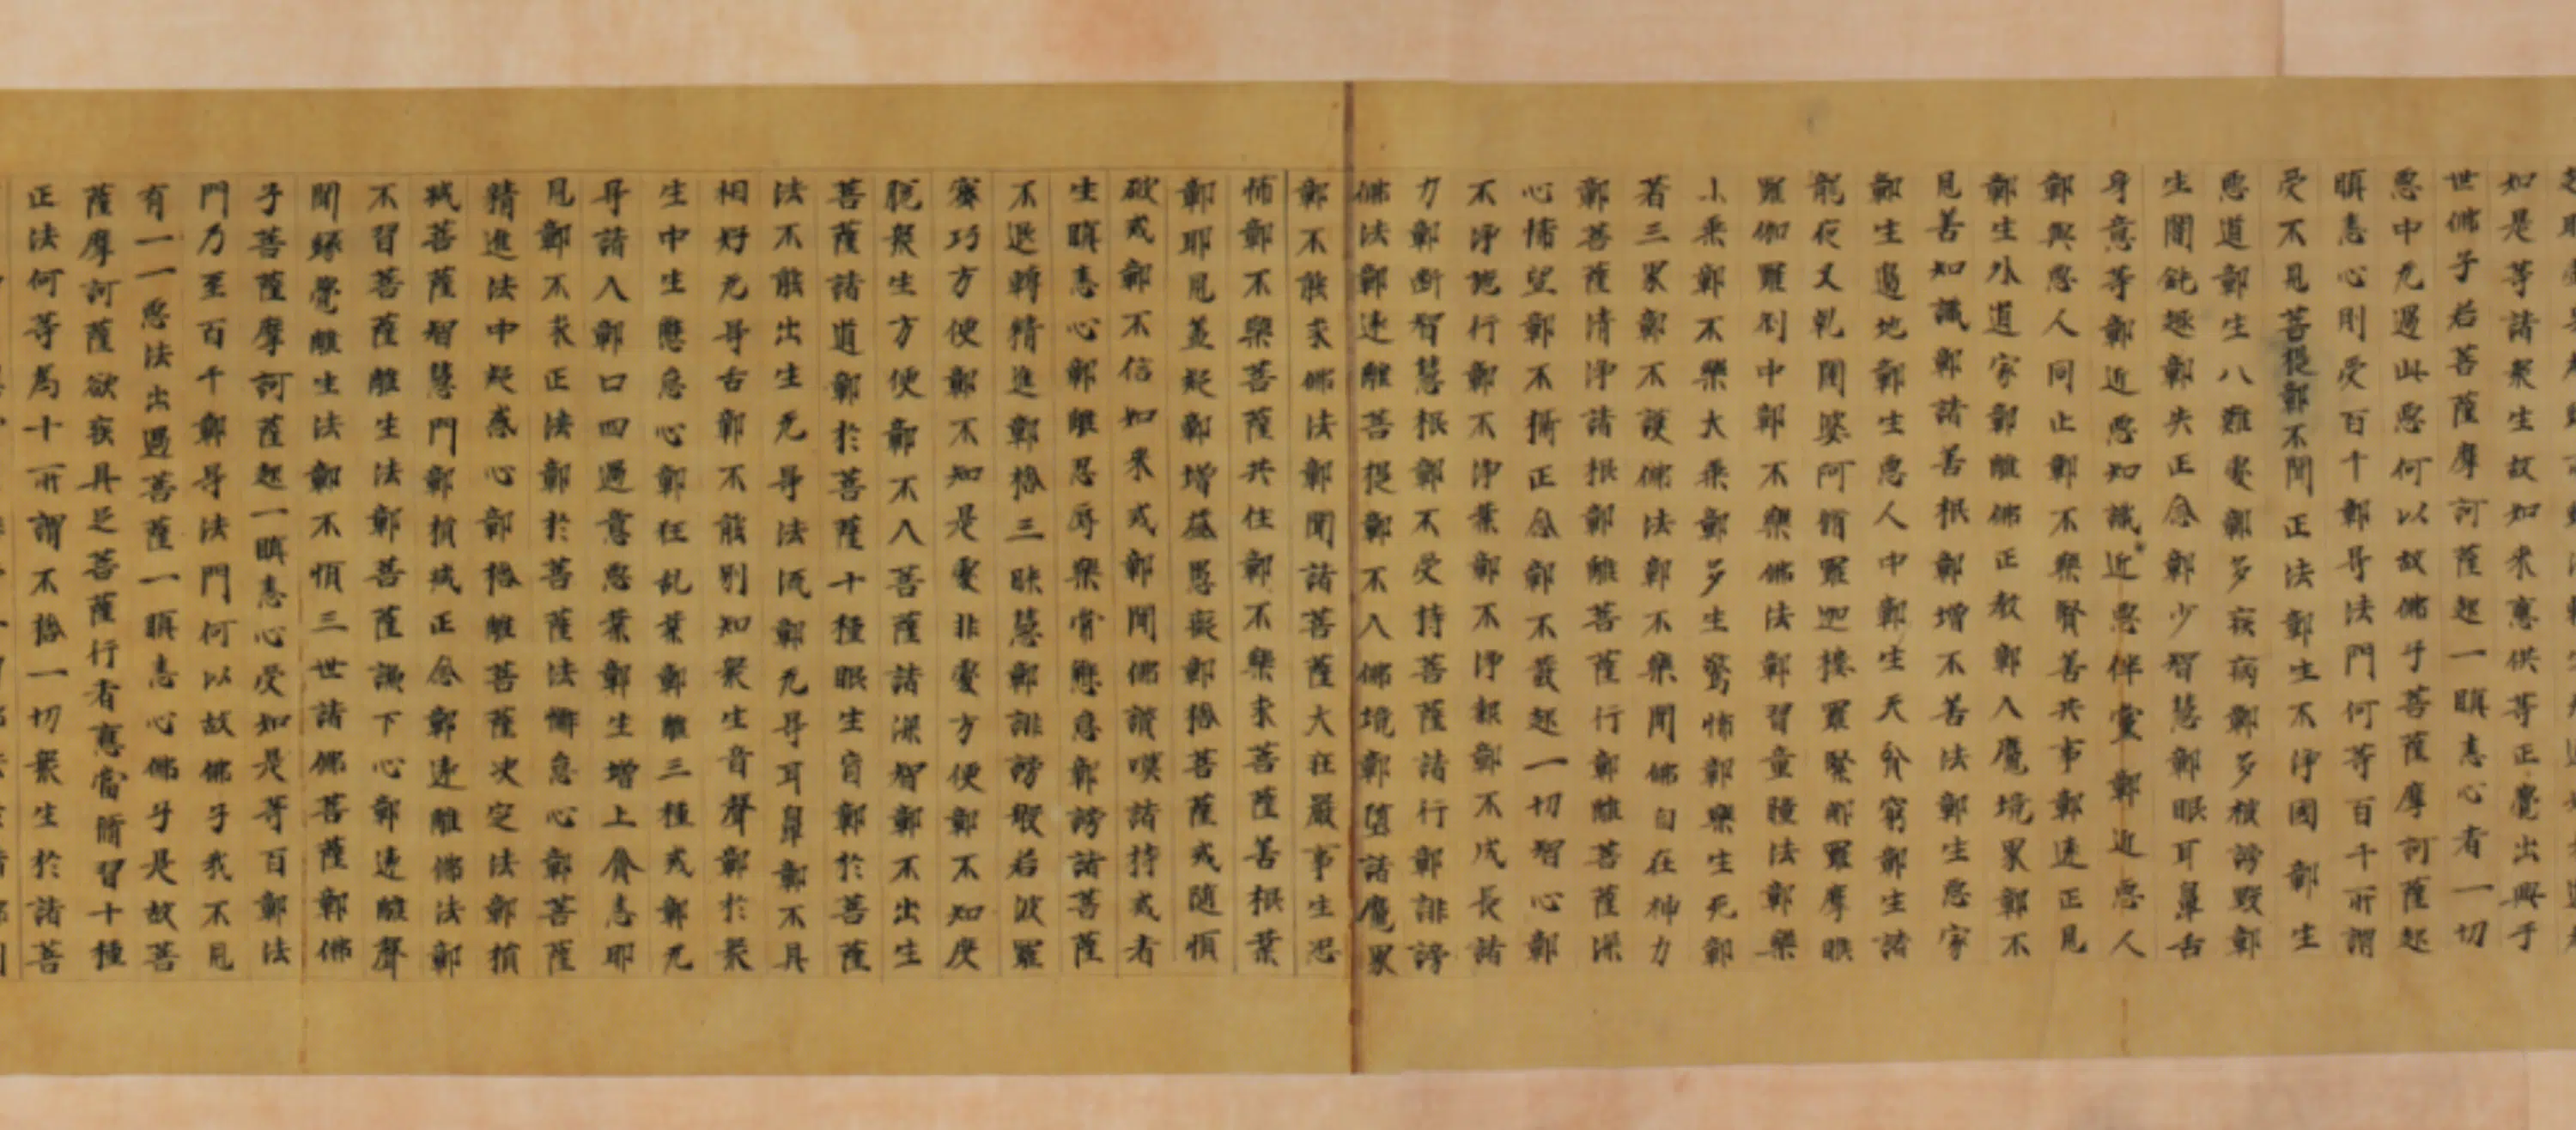 如是等諸衆生故如来應供等正覺出興于
世佛子若菩薩摩訶薩起一瞋恚心者一切
惡中无過此惡何以故佛子菩薩摩訶薩起
瞋恚心則受百千鄣㝵法門何等百千所謂
受不見菩提鄣不聞正法鄣生不淨國鄣生
惡道鄣生八難處鄣多疾病鄣多被謗毀鄣
生闇鈍趣鄣失正念鄣少智慧鄣眼耳鼻舌
身意等鄣近惡知識近惡伴黨鄣近惡人
鄣與惡人同止鄣不樂賢善共事鄣遠正見
鄣生外道家鄣離佛正教鄣入魔境界鄣不
見善知識鄣諸善根鄣增不善法鄣生惡家
鄣生邊地鄣生惡人中鄣生天分窮鄣生諸
龍夜叉乹闥婆阿脩羅迦樓羅緊那羅摩睺
羅伽羅刹中鄣不樂佛法鄣習童矇法鄣樂
小乘鄣不樂大乘鄣多生驚怖鄣樂生死鄣
著三界鄣不護佛法鄣不樂聞佛自在神力
鄣菩薩清淨諸根鄣離菩薩行鄣離菩薩深
心怖望鄣不攝正念鄣不發起一切智心鄣
不淨施行鄣不淨業鄣不淨報鄣不成長諸
力鄣断智慧根鄣不受持菩薩諸行鄣誹謗
佛法鄣遠離菩提鄣不入佛境鄣墮諸魔界
鄣不能求佛法鄣聞諸菩薩大莊嚴事生恐
怖鄣不樂菩薩共住鄣不樂求菩薩善根業
鄣耶見蓋疑鄣增益愚癡鄣捨菩薩戒隨順
破戒鄣不信如来戒鄣聞佛讃嘆諸持戒者
生瞋恚心鄣離忍辱樂常懈怠鄣謗諸菩薩
不退轉精進鄣捨三昧慧鄣誹謗般若波羅
蜜巧方便鄣不知是處非處方便鄣不知度
脫衆生方便鄣不入菩薩諸深智鄣不出生
菩薩諸道鄣於菩薩十種眼生盲鄣於菩薩
法不能出生无㝵法流鄣无㝵耳鼻鄣不具
相好无㝵舌鄣不能別知衆生音聲鄣於衆
生中生懈怠心鄣狂乱業鄣離三種戒鄣无
㝵諸入鄣口四過意惡業鄣生增上貪恚耶
見鄣不求正法鄣於菩薩法懈怠心鄣菩薩
精進法中疑惑心鄣捨離菩薩決定法鄣損
減菩薩智慧門鄣損減正念鄣遠離佛法鄣
不習菩薩離生法鄣菩薩謙下心鄣遠離聲
聞緣覺離生法鄣不順三世諸佛菩薩鄣佛
子菩薩摩訶薩起一瞋恚心受如是等百鄣法
門乃至百千鄣㝵法門何以故佛子我不見
有一一惡法出過菩薩一瞋恚心佛子是故菩
薩摩訶薩欲疾具足菩薩行者應當脩習十種
正法何等為十所謂不捨一切衆生於諸菩